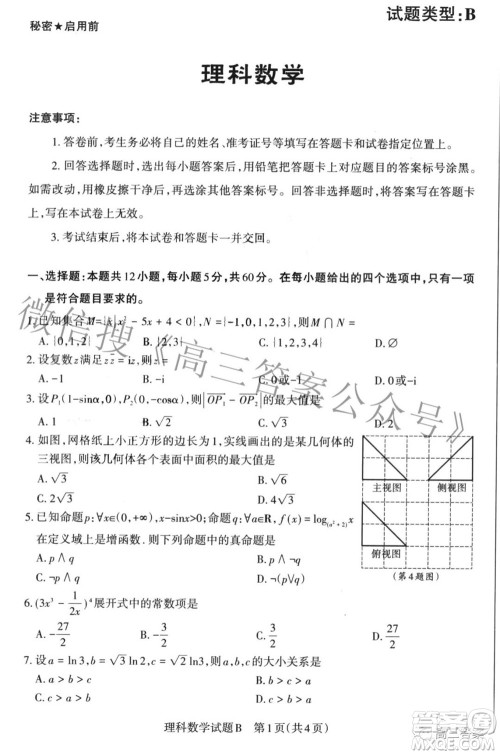 试题类型:B
秘密★启用前
理科数学
注意事项:
1. 答卷前,考生务必将自己的姓名、准考证号等填写在答题卡和试卷指定位置上。
2. 回答选择题时,选出每小题答案后,用铅笔把答题卡对应题目的答案标号涂黑。
如需改动,用橡皮擦干净后,再选涂其它答案标号。回答非选择题时,将答案写在答题卡
上,写在本试卷上无效。
3. 考试结束后,将本试卷和答题卡一并交回。
一、选择题:本题共12小题,每小题5分,共60分。在每小题给出的四个选项中,只有一项
是符合题目要求的。
1. 已知集合M={x|x²-5x+4<0},N={-1,0,1,2,3},则M∩N=
A. {0,1,2} B. {2,3} C. {1,2,3,4} D. ∅
2. 设复数z满足z z̄ = iz,则z=
A. -1 B. -i C. 0或-1 D. 0或-i
3. 设P₁(1-sinα,0),P₂(0,-cosα),则|OP₁ - OP₂|的最大值是
A. 1 B. √2 C. √3 D. 2
4. 如图,网格纸上小正方形的边长为1,图中画出的是某几何体的
三视图,则该几何体各个表面中面积的最大值是
A. √3 B. √6
C. 2√3 D. 4√3
主视图 侧视图
俯视图
(第4题图)
5. 已知命题p:∀x∈(0,+∞),x-sinx>0;命题q:∀a∈R,f(x)=log₍ₐ²₊₂₎x
在定义域上是增函数. 则下列命题中的真命题是
A. p∧q B. ¬p∧q
C. p∧¬q D. ¬(p∨q)
6. (3x³ - 1/2x)⁴展开式中的常数项是
A. -27/2 B. -3/2 C. 3/2 D. 27/2
7. 设a=ln3,b=√3ln2,c=√2ln3,则a,b,c的大小关系是
A. a>b>c B. b>a>c
C. c>a>b D. c>b>a
理科数学试题B 第1页(共4页)
微信搜《高三答案公众号》
高三答案